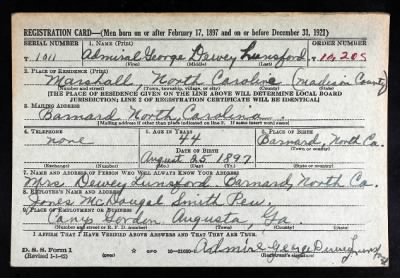 REGISTRATION CARD—(Men born on or after February 17, 1897 and on or before December 31, 1921)
SERIAL NUMBER 1. NAME (Print) ORDER NUMBER
T 1011 Admiral George Dewey Lunsford 10,205
(First) (Middle) (Last)
2. PLACE OF RESIDENCE (Print)
Marshall, North Carolina (Madison County)
(Number and street) (Town, township, village, or city) (County) (State)
[THE PLACE OF RESIDENCE GIVEN ON THE LINE ABOVE WILL DETERMINE LOCAL BOARD
JURISDICTION; LINE 2 OF REGISTRATION CERTIFICATE WILL BE IDENTICAL]
3. MAILING ADDRESS
Barnard North Carolina
[Mailing address if other than place indicated on line 2. If same insert word same]
4. TELEPHONE 5. AGE IN YEARS 6. PLACE OF BIRTH
none 44 Barnard,
DATE OF BIRTH (Town or county)
August 25 1897 North Ca.
(Exchange) (Number) (Mo.) (Day) (Yr.) (State or country)
7. NAME AND ADDRESS OF PERSON WHO WILL ALWAYS KNOW YOUR ADDRESS
Mrs. Dewey Lunsford, Barnard, North Ca.
8. EMPLOYER'S NAME AND ADDRESS
Jones McDougal Smith Pew.
9. PLACE OF EMPLOYMENT OR BUSINESS
Camp Gordon Augusta Ga
(Number and street or R. F. D. number) (Town) (County) (State)
I AFFIRM THAT I HAVE VERIFIED ABOVE ANSWERS AND THAT THEY ARE TRUE.
D. S. S. Form 1
(Revised 1-1-42) (over)
(Registrant's signature)